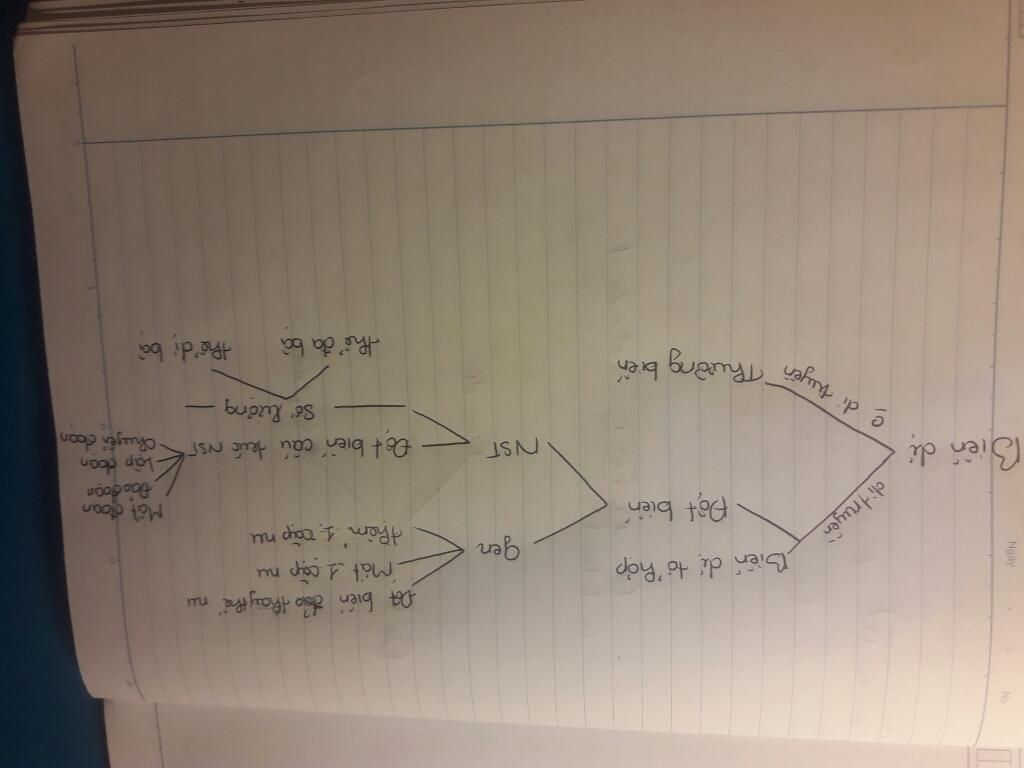 Biến dị
di truyền
ō di truyền
Biến dị tổ hợp
Đột biến
Thường biến
gen
Đột biến thay thế nu
Mất 1 cặp nu
thêm 1 cặp nu
NST
Đột biến cấu trúc NST
Mất đoạn
Đảo đoạn
Lặp đoạn
Chuyển đoạn
Số lượng
thể đa bội
thể dị bội
Ngày
No.